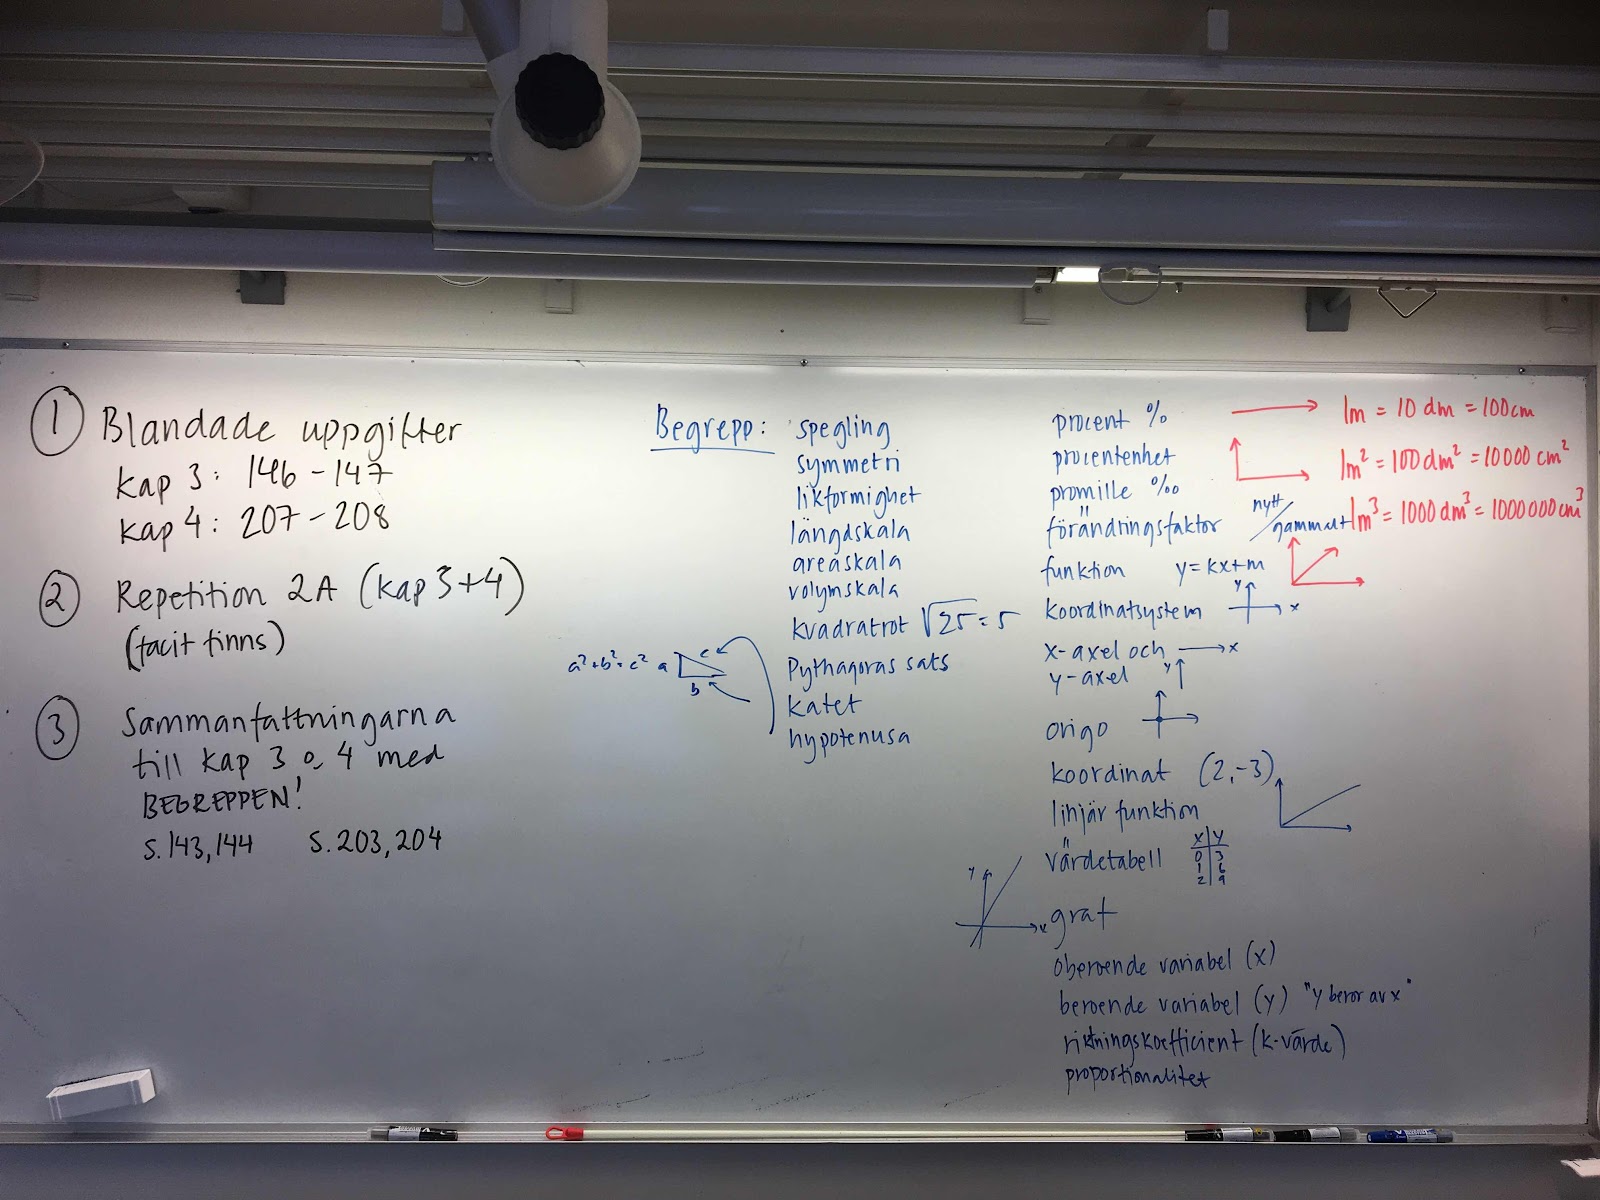 ① Blandade uppgifter
kap 3: 146-147
kap 4: 207-208
② Repetition 2A (kap 3+4)
(facit finns)
③ Sammanfattningarna
till kap 3 o 4 med
BEGREPPEN!
s.143,144 s.203,204
Begrepp: spegling
symmetri
likformighet
längdskala
areaskala
volymskala
kvadratrot √25 = 5
a²+b²=c² a b c
Pythagoras sats
katet
hypotenusa
procent %
procentenhet
promille ‰
förändringsfaktor nytt/gammalt
funktion y=kx+m
koordinatsystem y x
x-axel och x
y-axel y
origo
koordinat (2,-3)
linjär funktion
värdetabell x y
0 3
1 6
2 9
y x graf
oberoende variabel (x)
beroende variabel (y) "y beror av x"
riktningskoefficient (k-värde)
proportionalitet
1m = 10 dm = 100cm
1m² = 100dm² = 10000 cm²
1m³ = 1000 dm³ = 1000000cm³